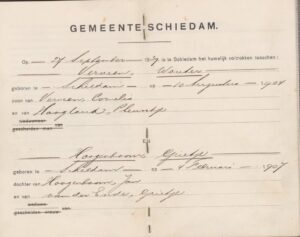 GEMEENTE SCHIEDAM.
Op 27 September 19 is te Schiedam het huwelijk voltrokken tusschen:
Verveen, Wouter
geboren te Schiedam 10 Augustus 1904
zoon van Verveen, Cornelis
en van Hoogland, Pleuntje
weduwnaar
gescheiden man van
EN
Hoogenboom, Grietje
geboren te Schiedam 4 Februari 1907
dochter van Hoogenboom, Jan
en van van der Ende, Grietje
weduwe
gescheiden vrouw van